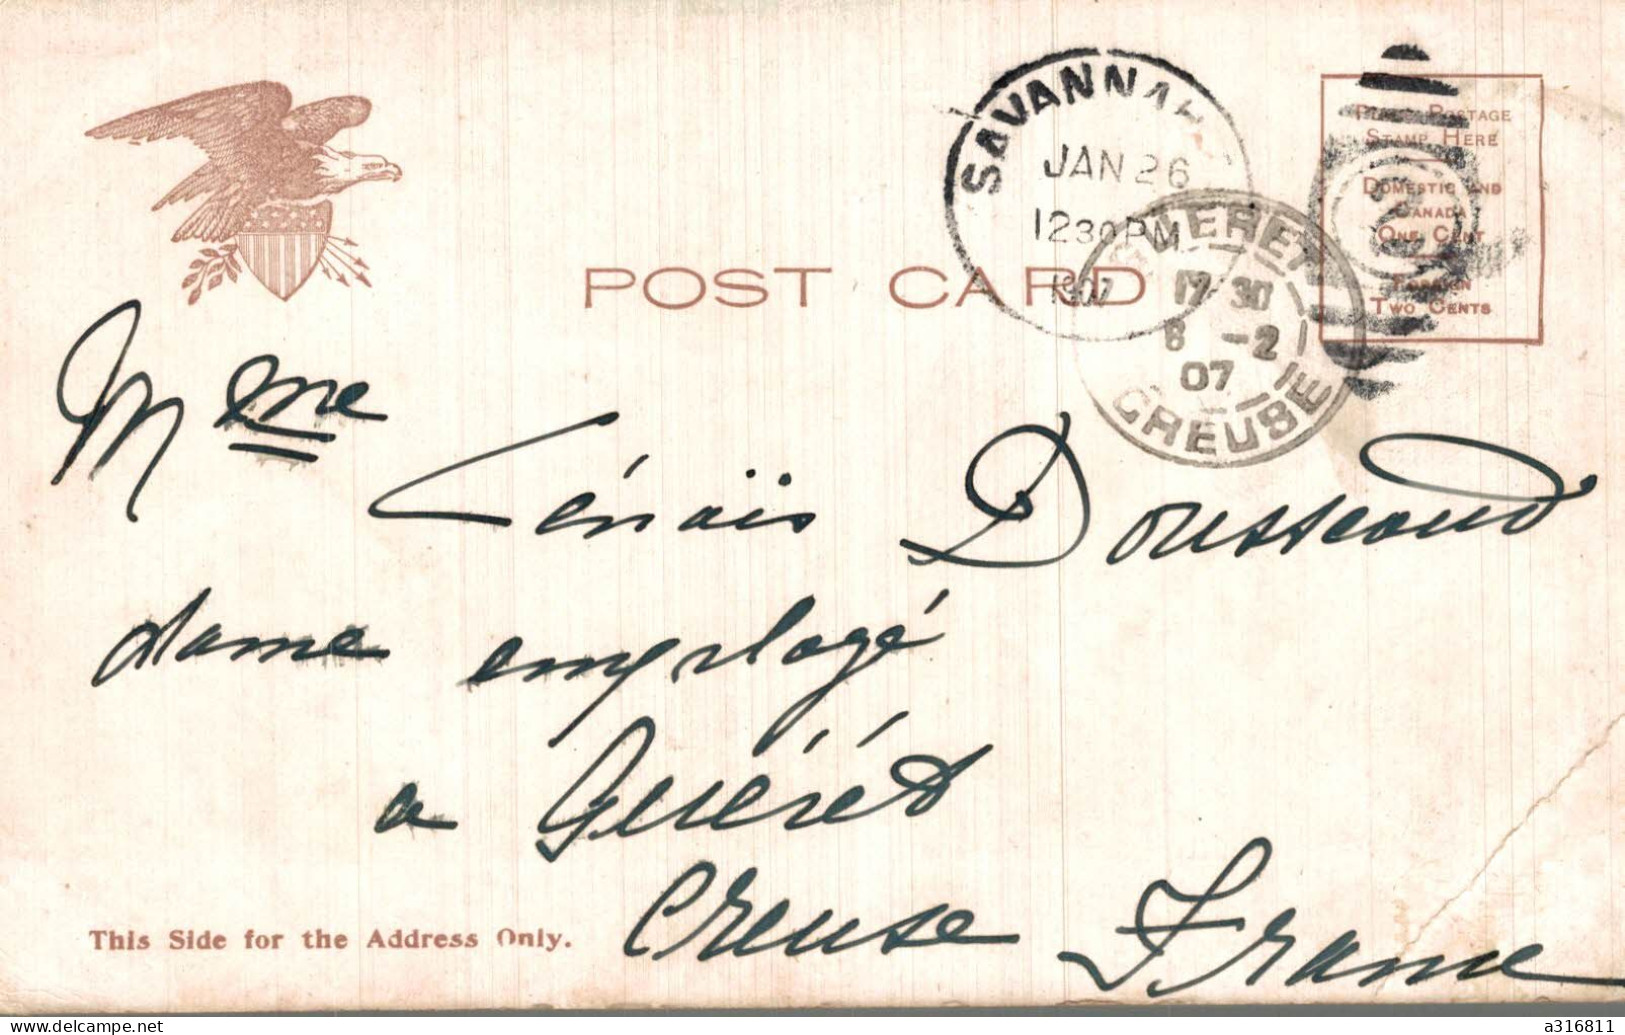 SAVANNAH
JAN 26
12 30 PM
1907
GUERET
17 30
8 -2
07
CREUSE
PLACE POSTAGE
STAMP HERE
DOMESTIC AND
CANADA
ONE CENT
FOREIGN
TWO CENTS
POST CARD
Mme Génaïs Dousseaud
dame employé
a Guéret
Creuse France
This Side for the Address Only.
www.delcampe.net
a316811